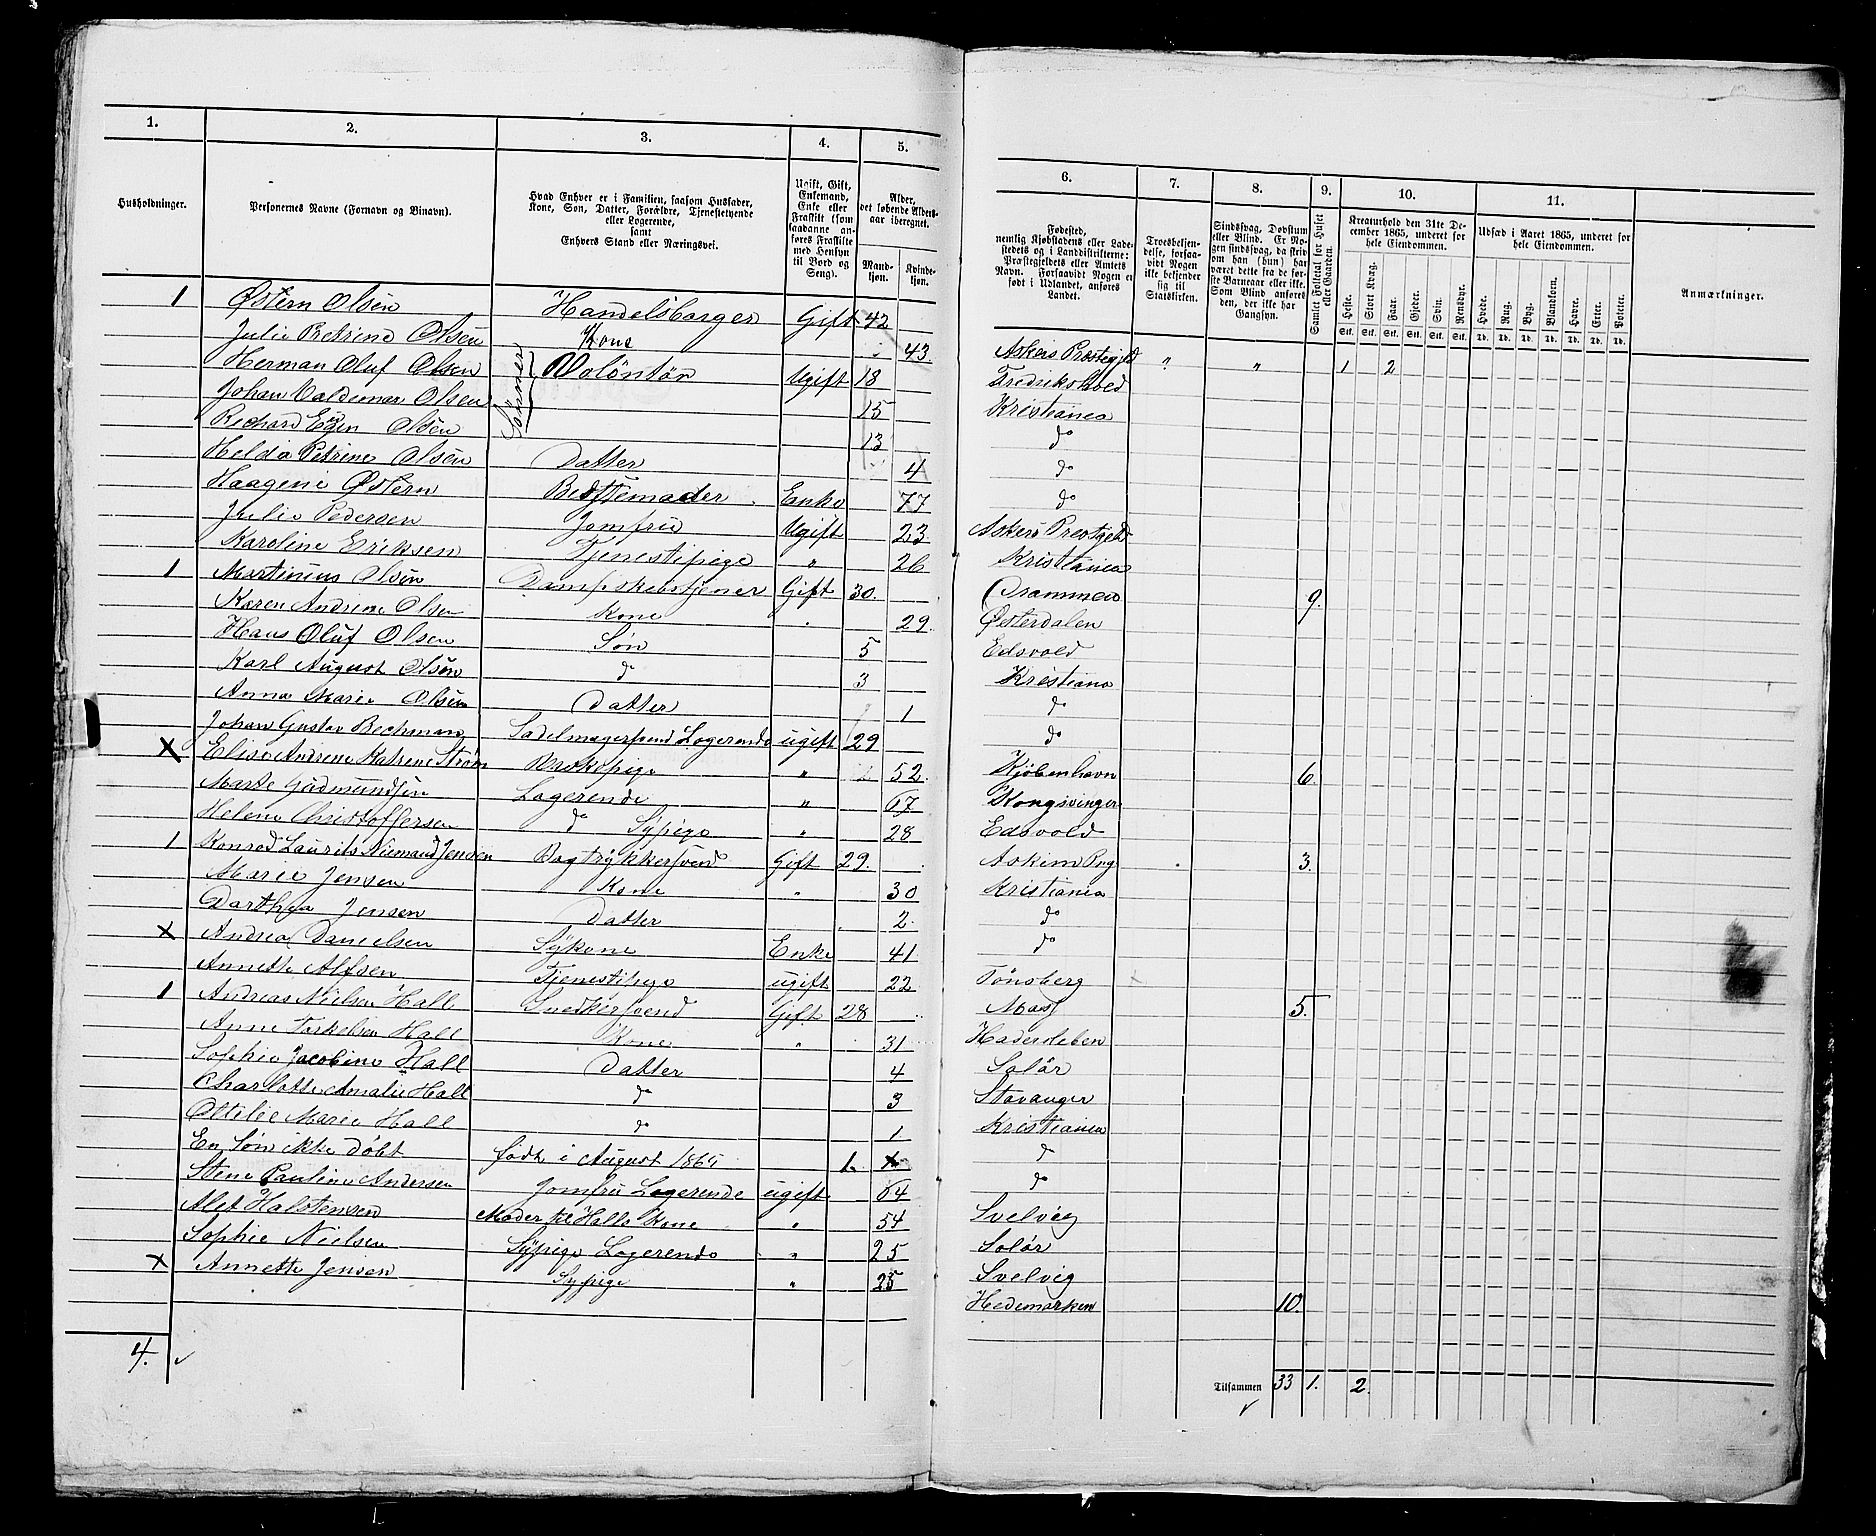 1. 2. 3. 4. 5.
Husholdninger.
Personernes Navne (Fornavn og Binavn).
Hvad Enhver er i Familien, saasom Husfader, Kone, Søn, Datter, Forældre, Tjenestetyende eller Logerende, samt Enhvers Stand eller Næringsvei.
Ugift, Gift, Enkemand, Enke eller Fraskilt (som saadanne anføres Fraskilte med Hensyn til Bord og Seng).
Alder, det løbende Aldersaar iberegnet.
Mandkjøn. Kvindekjøn.
1 Østern Olsen Handelsborger Gift 42
Julie Petrine Olsen Kone 43.
Herman Oluf Olsen Volontør Ugift 18
Sønner
Johan Valdemar Olsen 15
Richard Egen Olsen 13
Helda Petrine Olsen Datter 4
Haagene Østern Bedstemoder Enke 77
Julie Pedersen Jomfru Ugift 23
Karoline Eriksen Tjenestepige " 26
1 Martinius Olsen Dampskibstjener Gift 30.
Karen Andrine Olsen Kone 29.
Hans Oluf Olsen Søn 5
Karl August Olsen d 3
Anna Marie Olsen Datter 1
Johan Gustav Bechman Sadelmagersvend Logerende ugift 29
X Elise Andrine Katrine Strøm " 52.
Marte Gudmundsen Logerende " 67
Helene Christoffersen do Sypige " 28
1 Konrad Laurits Niemand Jensen Bogtrykkersvend Gift 29.
Marie Jensen Kone " 30
Dorthea Jensen Datter 2.
X Andrea Danielsen Sykone Enke 41
Annette Alfsen Tjenestepige ugift 22
1 Andreas Nielsen Hall Snedkersvend Gift 28
Anne Torkelsen Hall Kone " 31
Sophie Jacobine Hall Datter 4
Charlotte Amalie Hall do 3
Otilie Marie Hall do 1
En Søn ikke døbt født i August 1865 1.
Stene Pauline Andersen Jomfru Logerende ugift 64
Alet Halstensen Moder til Halls Kone " 54
Sophie Nielsen Sypige Logerende " 25
X Annette Jensen Sypige " 25
4.
6. 7. 8. 9. 10. 11.
Fødested, nemlig Kjøbstadens eller Ladestedets og i Landdistrikterne: Præstegjeldets eller Amtets Navn. Forsaavidt Nogen er født i Udlandet, anføres Landet.
Troesbekjendelse, forsaavidt Nogen ikke bekjender sig til Statskirken.
Sindssvag, Døvstum eller Blind. Er Nogen sindssvag, da skrives om han (hun) har været dette fra de første Barneaar eller ikke. Som Blind anføres den, der ikke har Gangsyn.
Samlet Folketal for Huset eller Gaarden.
Kreaturhold den 31te December 1865, underet for hele Eiendommen.
Heste. Stort Kvæg. Faar. Gjeder. Svin. Rensdyr.
Stk. Stk. Stk. Stk. Stk. Stk.
Udsæd i Aaret 1865, underet for hele Eiendommen.
Hvede. Rug. Byg. Blandkorn. Havre. Erter. Poteter.
Td. Td. Td. Td. Td. Td. Td.
Anmærkninger.
Askers Præstegjeld " " 1 2
Fredrikshald
Kristiania
do
do
do
Askers Prestgjeld
Kristiania
Drammen 9.
Østerdalen
Edsvold
Kristiania
do
do
Kjøbenhavn 6.
Kongsvinger
Edsvold
Askim Prg 3.
Kristiania
do
do
Tønsberg
Moss 5.
Hadersleben
Solør
Stavanger
Kristiania
do
do
Svelvig
Solør
Svelvig
Hedemarken 10.
Tilsammen 33 1. 2.